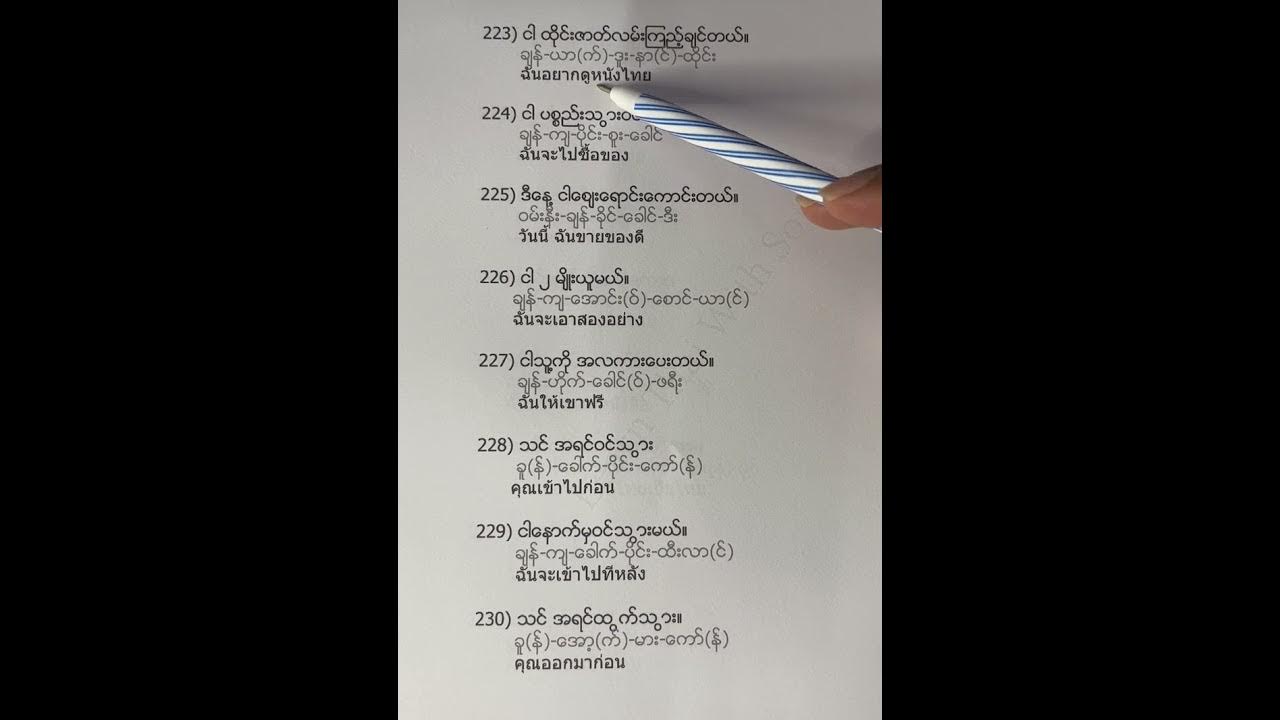 223) ငါ ထိုင်းဇာတ်လမ်းကြည့်ချင်တယ်။
ချန်-ယာ(က်)-ဒူး-နာ(င်)-ထိုင်း
ฉันอยากดูหนังไทย
224) ငါ ပစ္စည်းသွား
ချန်-ကျ-ပိုင်း-စူး-ခေါင်
ฉันจะไปซื้อของ
225) ဒီနေ့ ငါဈေးရောင်းကောင်းတယ်။
ဝမ်းနီး-ချန်-ခိုင်-ခေါင်-ဒီး
วันนี้ ฉันขายของดี
226) ငါ ၂ မျိုးယူမယ်။
ချန်-ကျ-အောင်း(ဝ်)-စောင်-ယာ(င်)
ฉันจะเอาสองอย่าง
227) ငါသူ့ကို အလကားပေးတယ်။
ချန်-ဟိုက်-ခေါင်(ဝ်)-ဖရီး
ฉันให้เขาฟรี
228) သင် အရင်ဝင်သွား
ခူ(န်)-ခေါက်-ပိုင်း-ကော်(န်)
คุณเข้าไปก่อน
229) ငါနောက်မှဝင်သွားမယ်။
ချန်-ကျ-ခေါက်-ပိုင်း-ထီးလာ(င်)
ฉันจะเข้าไปทีหลัง
230) သင် အရင်ထွက်သွား။
ခူ(န်)-အော့(က်)-မား-ကော်(န်)
คุณออกมาก่อน